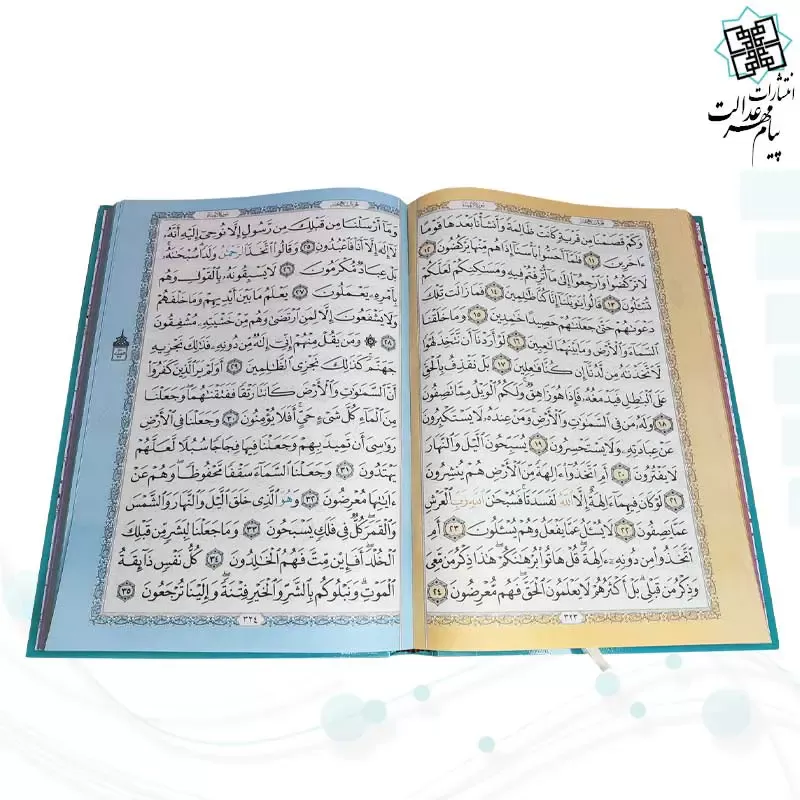 انتشارات
پیام مهر عدالت
وَكَمْ قَصَمْنَا مِن قَرْيَةٍ كَانَتْ ظَالِمَةً وَأَنشَأْنَا بَعْدَهَا قَوْمًا
ءَاخَرِينَ ١١ فَلَمَّا أَحَسُّوا بَأْسَنَا إِذَا هُم مِنْهَا يَرْكُضُونَ ١٢
لَا تَرْكُضُوا وَارْجِعُوا إِلَىٰ مَا أُتْرِفْتُمْ فِيهِ وَمَسَٰكِنِكُمْ لَعَلَّكُمْ
تُسْـَٔلُونَ ١٣ قَالُوا يَٰوَيْلَنَا إِنَّا كُنَّا ظَٰلِمِينَ ١٤ فَمَا زَالَت تِلْكَ
دَعْوَىٰهُمْ حَتَّىٰ جَعَلْنَٰهُمْ حَصِيدًا خَٰمِدِينَ ١٥ وَمَا خَلَقْنَا
السَّمَاءَ وَالْأَرْضَ وَمَا بَيْنَهُمَا لَٰعِبِينَ ١٦ لَوْ أَرَدْنَا أَن نَتَّخِذَ لَهْوًا
لَاتَّخَذْنَٰهُ مِن لَدُنَّا إِن كُنَّا فَٰعِلِينَ ١٧ بَلْ نَقْذِفُ بِالْحَقِّ
عَلَى الْبَٰطِلِ فَيَدْمَغُهُ فَإِذَا هُوَ زَاهِقٌ وَلَكُمُ الْوَيْلُ مِمَّا تَصِفُونَ
١٨ وَلَهُ مَن فِي السَّمَٰوَٰتِ وَالْأَرْضِ وَمَنْ عِندَهُ لَا يَسْتَكْبِرُونَ
عَنْ عِبَادَتِهِ وَلَا يَسْتَحْسِرُونَ ١٩ يُسَبِّحُونَ الَّيْلَ وَالنَّهَارَ
لَا يَفْتُرُونَ ٢٠ أَمِ اتَّخَذُوا ءَالِهَةً مِنَ الْأَرْضِ هُمْ يُنشِرُونَ
٢١ لَوْ كَانَ فِيهِمَا ءَالِهَةٌ إِلَّا اللَّهُ لَفَسَدَتَا فَسُبْحَٰنَ اللَّهِ رَبِّ الْعَرْشِ
عَمَّا يَصِفُونَ ٢٢ لَا يُسْـَٔلُ عَمَّا يَفْعَلُ وَهُمْ يُسْـَٔلُونَ ٢٣ أَمِ
اتَّخَذُوا مِن دُونِهِ ءَالِهَةً قُلْ هَاتُوا بُرْهَٰنَكُمْ هَٰذَا ذِكْرُ مَن مَعِيَ
وَذِكْرُ مَن قَبْلِي بَلْ أَكْثَرُهُمْ لَا يَعْلَمُونَ الْحَقَّ فَهُم مُعْرِضُونَ ٢٤
٣٢٣
وَمَا أَرْسَلْنَا مِن قَبْلِكَ مِن رَسُولٍ إِلَّا نُوحِي إِلَيْهِ أَنَّهُ
لَا إِلَٰهَ إِلَّا أَنَا فَاعْبُدُونِ ٢٥ وَقَالُوا اتَّخَذَ الرَّحْمَٰنُ وَلَدًا سُبْحَٰنَهُ
بَلْ عِبَادٌ مُكْرَمُونَ ٢٦ لَا يَسْبِقُونَهُ بِالْقَوْلِ وَهُم
بِأَمْرِهِ يَعْمَلُونَ ٢٧ يَعْلَمُ مَا بَيْنَ أَيْدِيهِمْ وَمَا خَلْفَهُمْ
وَلَا يَشْفَعُونَ إِلَّا لِمَنِ ارْتَضَىٰ وَهُم مِنْ خَشْيَتِهِ مُشْفِقُونَ
٢٨ وَمَن يَقُلْ مِنْهُمْ إِنِّي إِلَٰهٌ مِن دُونِهِ فَذَٰلِكَ نَجْزِيهِ
جَهَنَّمَ كَذَٰلِكَ نَجْزِي الظَّٰلِمِينَ ٢٩ أَوَلَمْ يَرَ الَّذِينَ كَفَرُوا
أَنَّ السَّمَٰوَٰتِ وَالْأَرْضَ كَانَتَا رَتْقًا فَفَتَقْنَٰهُمَا وَجَعَلْنَا
مِنَ الْمَاءِ كُلَّ شَيْءٍ حَيٍّ أَفَلَا يُؤْمِنُونَ ٣٠ وَجَعَلْنَا فِي الْأَرْضِ
رَوَٰسِيَ أَن تَمِيدَ بِهِمْ وَجَعَلْنَا فِيهَا فِجَاجًا سُبُلًا لَعَلَّهُمْ
يَهْتَدُونَ ٣١ وَجَعَلْنَا السَّمَاءَ سَقْفًا مَحْفُوظًا وَهُمْ عَنْ
ءَايَٰتِهَا مُعْرِضُونَ ٣٢ وَهُوَ الَّذِي خَلَقَ الَّيْلَ وَالنَّهَارَ وَالشَّمْسَ
وَالْقَمَرَ كُلٌّ فِي فَلَكٍ يَسْبَحُونَ ٣٣ وَمَا جَعَلْنَا لِبَشَرٍ مِن قَبْلِكَ
الْخُلْدَ أَفَإِين مِتَّ فَهُمُ الْخَٰلِدُونَ ٣٤ كُلُّ نَفْسٍ ذَائِقَةُ
الْمَوْتِ وَنَبْلُوكُم بِالشَّرِّ وَالْخَيْرِ فِتْنَةً وَإِلَيْنَا تُرْجَعُونَ ٣٥
٣٢٤